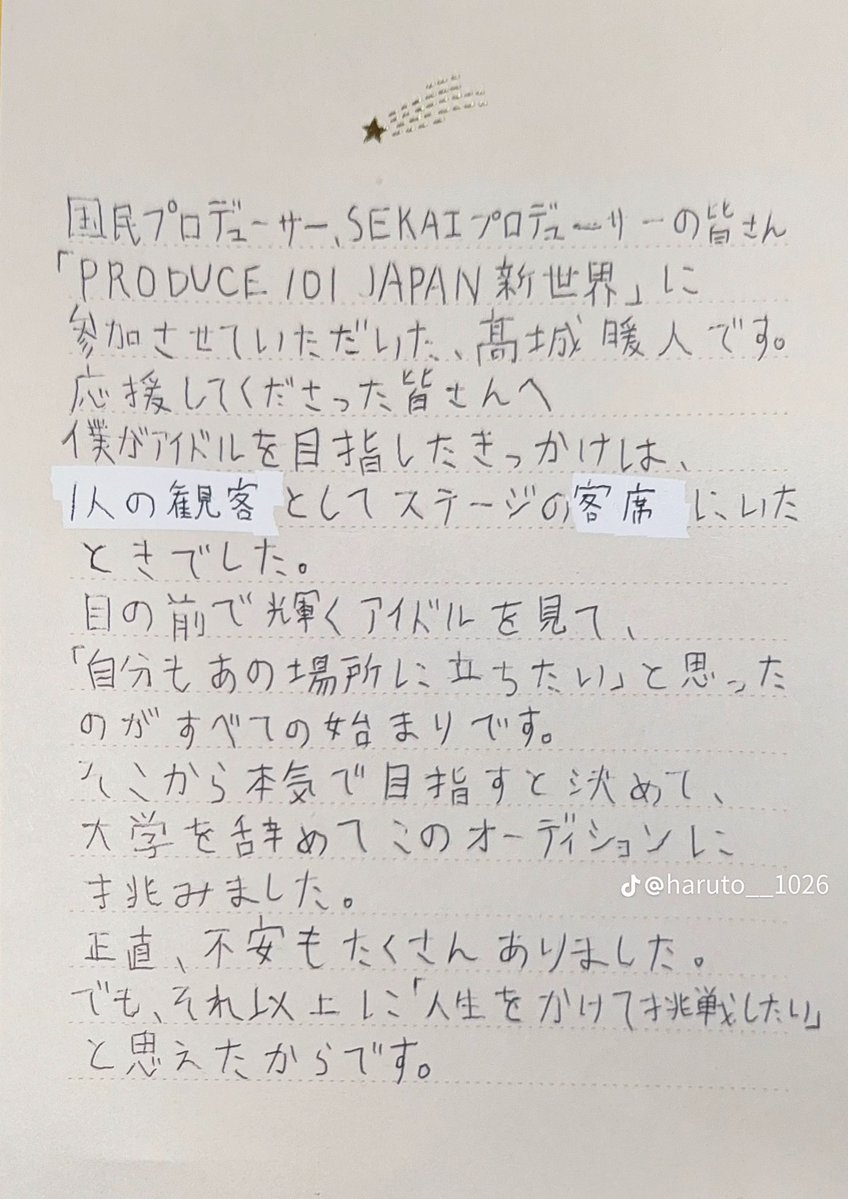 国民プロデューサー、SEKAIプロデューサーの皆さん
「PRODUCE 101 JAPAN 新世界」に
参加させていただいた、髙城 暖人です。
応援してくださった皆さんへ
僕がアイドルを目指したきっかけは、
1人の観客としてステージの客席にいた
ときでした。
目の前で輝くアイドルを見て、
「自分もあの場所に立ちたい」と思った
のがすべての始まりです。
そこから本気で目指すと決めて、
大学を辞めてこのオーディションに
挑みました。
@haruto__1026
正直、不安もたくさんありました。
でも、それ以上に「人生をかけて挑戦したい」
と思えたからです。